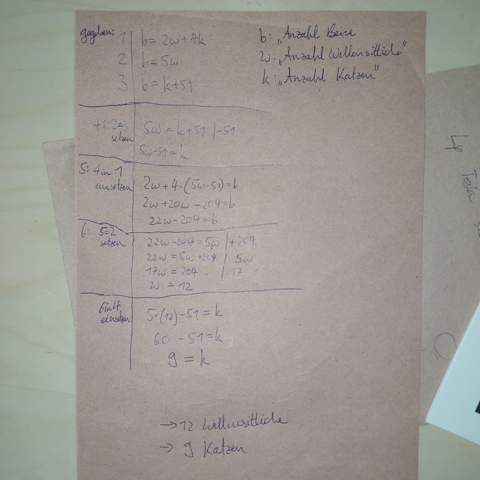 gegeben: 1 b = 2w + 4k
2 b = 5w
3 b = k + 51
b: „Anzahl Beine
w: „Anzahl Wellensittiche"
k: „Anzahl Katzen"
5w = k + 51 | -51
5w - 51 = k
5: 4 in 1
einsetzen
2w + 4 · (5w - 51) = b
2w + 20w - 204 = b
22w - 204 = b
6: 5=2
setzen
22w - 204 = 5w | + 204
22w = 5w + 204 | 5w
17w = 204 17
w = 12
5 · (12) - 51 = k
60 - 51 = k
9 = k
→ 12 Wellensittiche
→ 9 Katzen